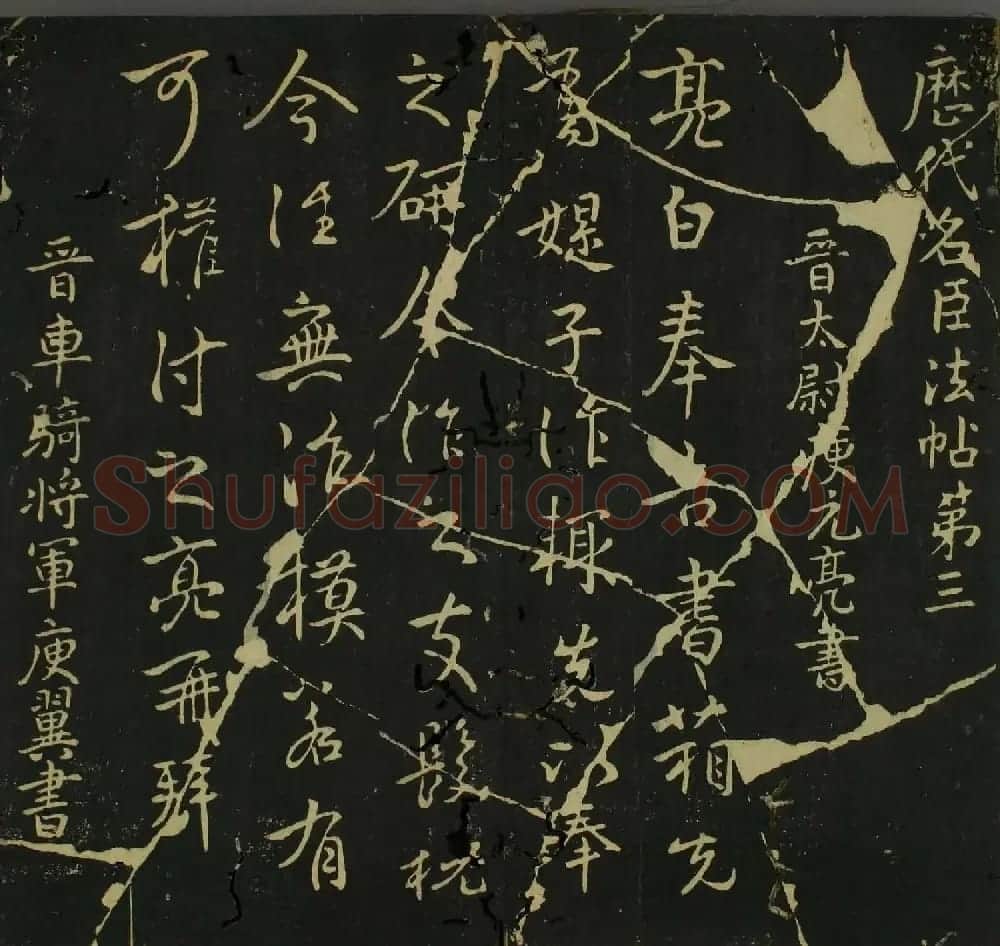 歷代名臣法帖第三
晉太尉庾元亮書
亮白奉告書箱先
媒子作先所奉
之研今作之支
今往無復模若有
可權付之亮再拜
晉車騎將軍庾翼書
Shufaziliao.COM